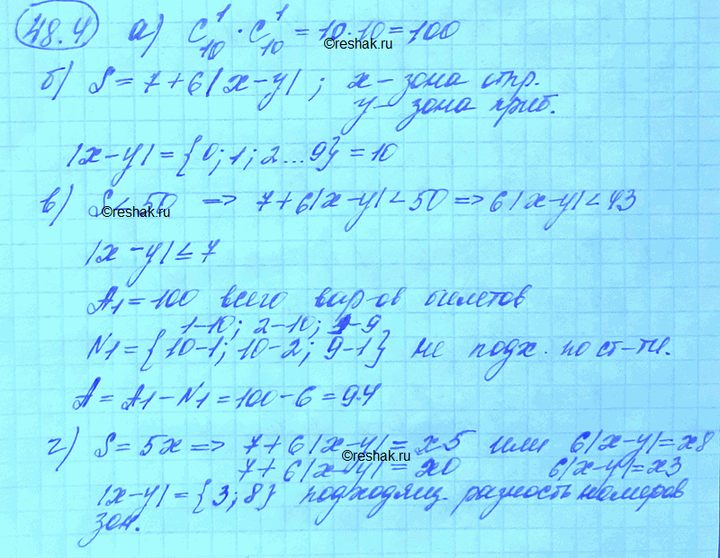 48.4 а) C₁₀¹ · C₁₀¹ = 10·10 = 100
©reshak.ru
б) S = 7 + 6|x − y| ; x – зона отпр.
y – зона приб.
|x − y| = {0; 1; 2 ... 9} = 10
в) S < 50 => 7 + 6|x − y| < 50 => 6|x − y| < 43
©reshak.ru
|x − y| ≤ 7
A₁ = 100 всего вар-ов билетов
1-10; 2-10; 1-9
N₁ = {10-1; 10-2; 9-1} не подх. по ст-ти.
A = A₁ − N₁ = 100 − 6 = 94
г) S = 5x => 7 + 6|x − y| = x5 или 6|x − y| = x8
7 + 6|x − y| = x0 6|x − y| = x3
©reshak.ru
|x − y| = {3; 8} подходящ. разность номеров
зон.